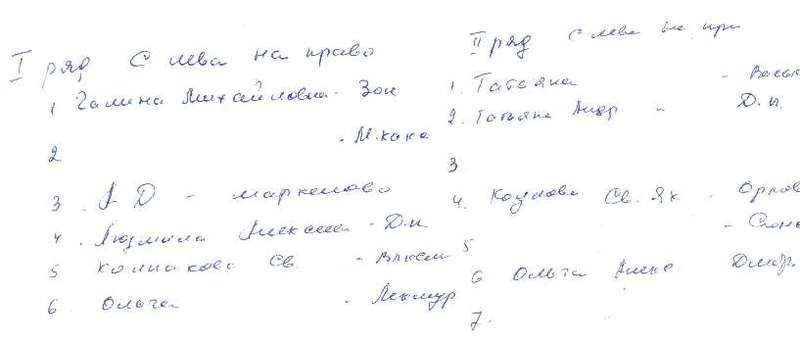 I ряд С лева на право
1 Галина Михайловна - Зон
2 - М.кана
3. А Д - маркелово
4. Людмила Алексеев - Д.п.
5 Колпакова Св. -
6 Ольга -
II ряд С лева на пра
1. Татьяна - Васьк
2. Татьяна Андр - Д.п.
3
4. Козлова Св. Як - Орлов
5 -
6 Ольга Дмитр.
7.